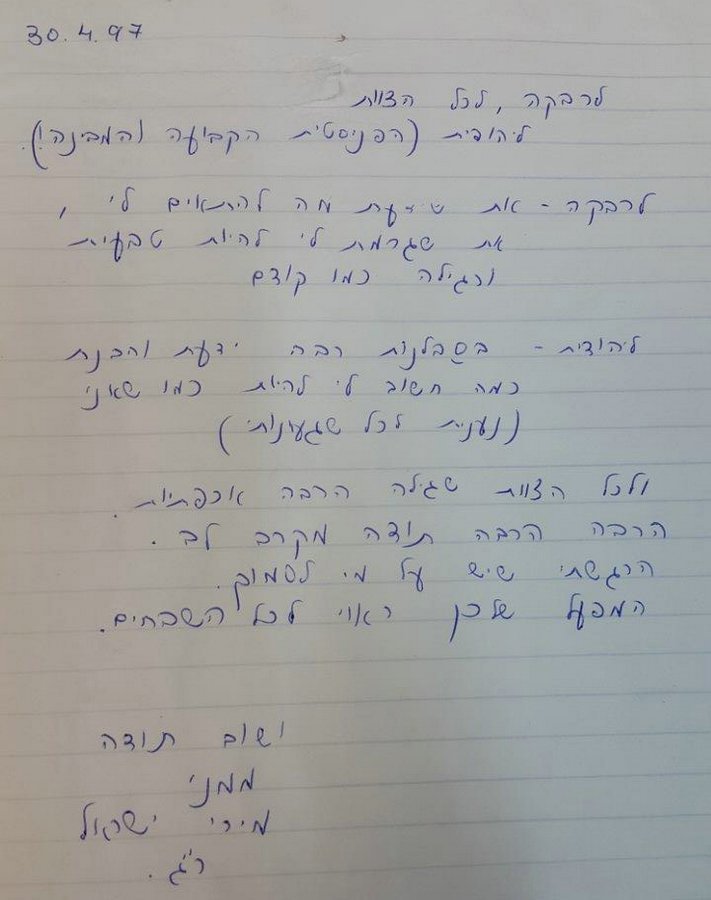 30.4.97
לרבקה, לכל הצוות
ליהודית (הפניסטית הקבועה והמבינה!).
לרבקה - את שידעת מה להתאים לי,
את שגרמת לי להיות טבעית
ורגילה כמו קודם
ליהודית - בסבלנות רבה ידעת והבנת
כמה חשוב לי להיות כמו שאני
(נענית לכל שגעונותי)
ולכל הצוות שגילה הרבה אכפתיות.
הרבה הרבה תודה מקרב לב.
הרגשתי שיש על מי לסמוך.
המפעל שלכן ראוי לכל השבחים.
ושוב תודה
ממני
מירי ישראל
ר"ג.